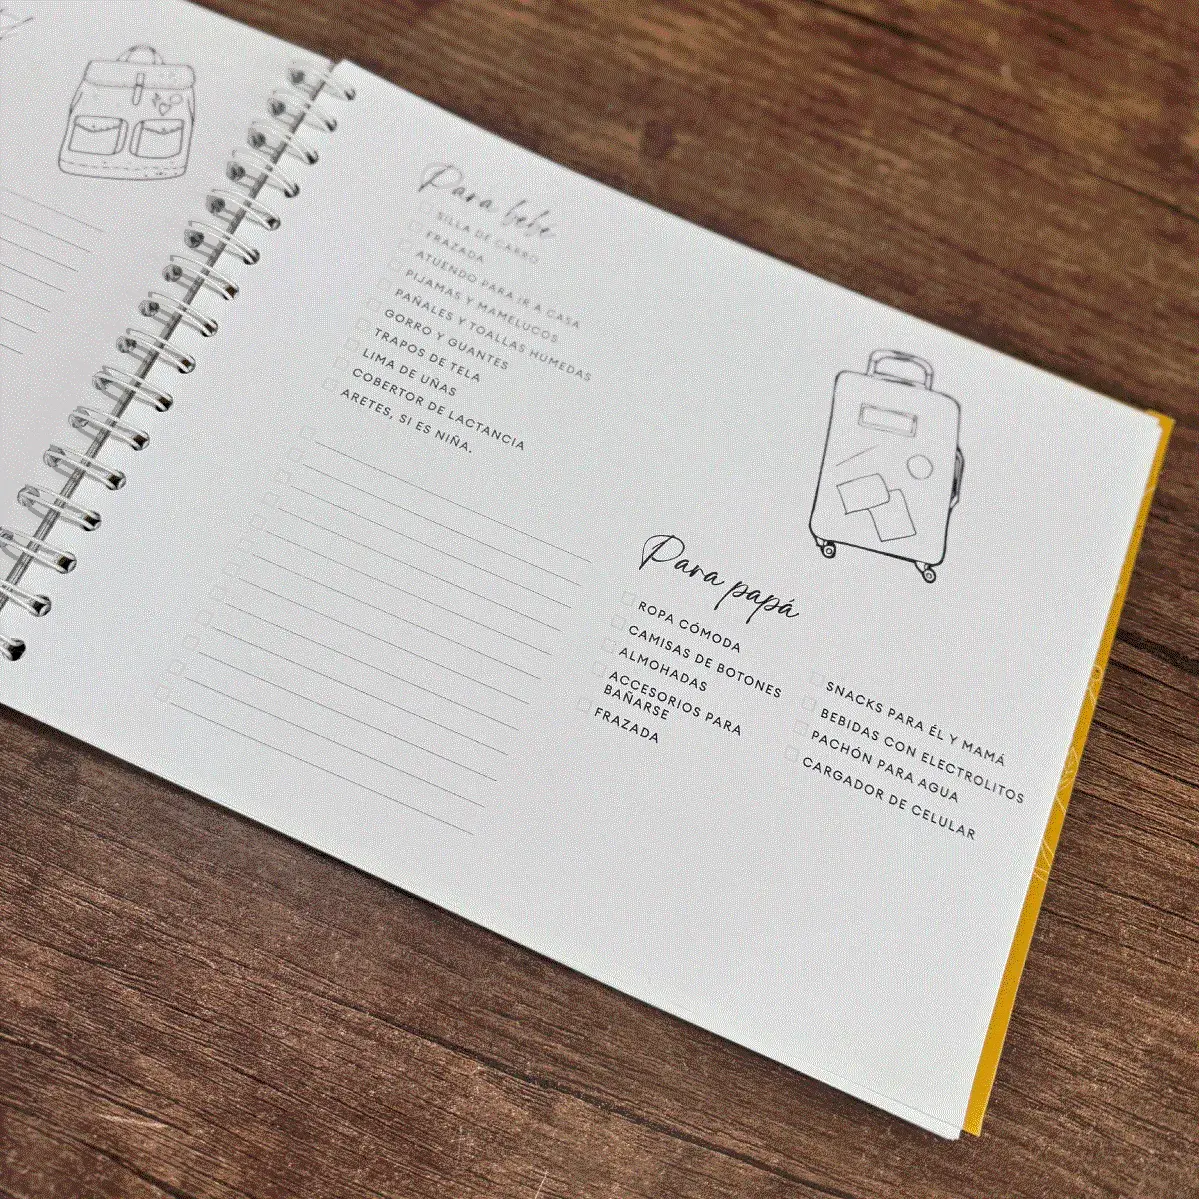 Para bebe
SILLA DE CARRO
FRAZADA
ATUENDO PARA IR A CASA
PIJAMAS Y MAMELUCOS
PAÑALES Y TOALLAS HUMEDAS
GORRO Y GUANTES
TRAPOS DE TELA
LIMA DE UÑAS
COBERTOR DE LACTANCIA
ARETES, SI ES NIÑA.
Para papá
ROPA CÓMODA
CAMISAS DE BOTONES
ALMOHADAS
ACCESORIOS PARA
BAÑARSE
FRAZADA
SNACKS PARA ÉL Y MAMÁ
BEBIDAS CON ELECTROLITOS
PACHÓN PARA AGUA
CARGADOR DE CELULAR